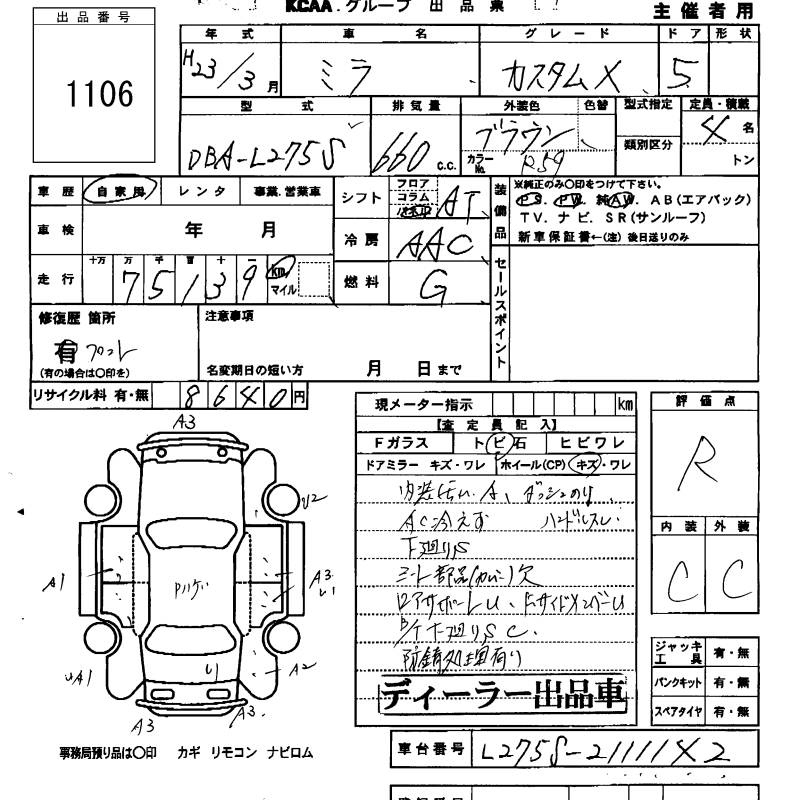 KCAA.グループ 出品票
主催者用
出品番号
1106
年式 車名 グレード ドア 形状
H23/3月 ミラ カスタムX 5
型式 排気量 外装色 色替 型式指定 定員・積載
DBA-L275S 660c.c. ブラウン カラーNo. R59 類別区分 4名
トン
車歴 自家用 レンタ 事業.営業車 シフト フロア コラム AT
装備品 ※純正のみ○印をつけて下さい。
PS. PW. 純AW. AB(エアバック)
TV. ナビ. SR(サンルーフ)
新車保証書←(注)後日送りのみ
車検 年 月 冷房 AAC
走行 十万 万 千 百 十 一 75139 km マイル 燃料 G
セールスポイント
修復歴 箇所 注意事項
有 フロント
(有の場合は○印を) 名変期日の短い方 月 日まで
リサイクル料 有・無 8640円
現メーター指示 km
【査定員記入】
Fガラス トビ石 ヒビワレ
ドアミラー キズ・ワレ ホイール(CP) キズ・ワレ
AC冷えず
下廻りS
防錆処理有り
ディーラー出品車
評価点
R
内装 外装
C C
ジャッキ工具 有・無
パンクキット 有・無
スペアタイヤ 有・無
A3
U2
A1
A3.
U1
UA1
U1
A2
A3
A3.
事務局預り品は○印 カギ リモコン ナビロム
車台番号 L275S-21111X2